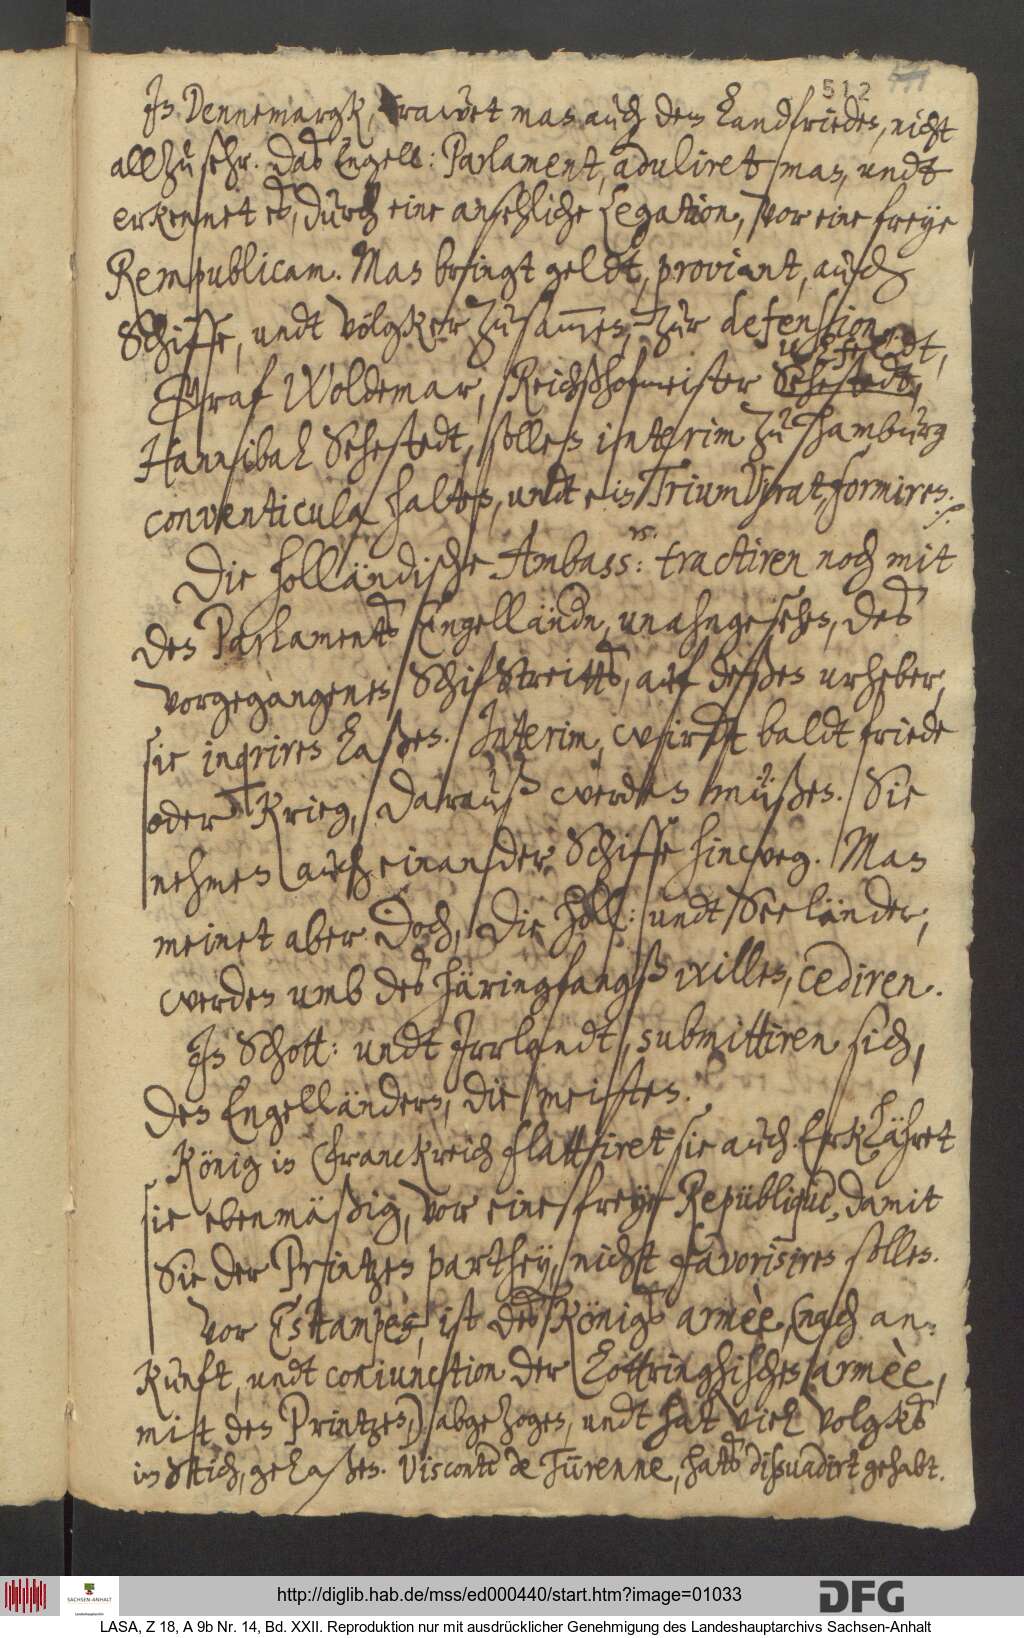 512
In Dennemargk, trawet man auch dem Landfrieden, nicht
allzu sehr. Das Engell: Parlament, aduliret man, undt
erkennet es, durch eine ansehliche Legation, vor eine freye
Rempublicam. Man bringt geldt, proviant, auch
Schiffe, undt völgker zusammen, zur defension.
Uhlefeldt,
Graf Woldemar, Reichßhofmeister Sehestedt,
Hannibal Sehestedt, sollen interim zu Hamburg
conventicula halten, undt ein TriumVirat, formiren.
Die holländische Ambass:rs. tractiren noch mit
des Parlaments Engellandn, unahngesehen, des
vorgegangenen SchifStreitts, auf deßen urheber,
sie inqriren laßen. Interim, wirdt baldt friede
oder Krieg, darauß werden müßen. Sie
nehmen auch einander Schiffe hinweg. Man
meinet aber doch, die Holl: undt Seeländer,
werden umb des häringfangß willen, cediren.
In Schott: undt Irrlandt, submittiren sich,
den Engelländern, die meisten.
König in Franckreich flattiret sie auch. Erklähret
sie ebenmäßig, vor eine freye Republique, damit
Sie der Printzen parthey, nicht favorisiren sollen.
Vor Estampes, ist des Königs armèe, (nach an-
kunft, undt coniunction der Lottringhischen armèe,
mit den Printzen) abgezogen, undt hat viel volgks
im Stich, gelaßen. Visconte de Türenne, hats dißuadirt gehabt.
http://diglib.hab.de/mss/ed000440/start.htm?image=01033
DFG
SACHSEN-ANHALT
Landeshauptarchiv
LASA, Z 18, A 9b Nr. 14, Bd. XXII. Reproduktion nur mit ausdrücklicher Genehmigung des Landeshauptarchivs Sachsen-Anhalt